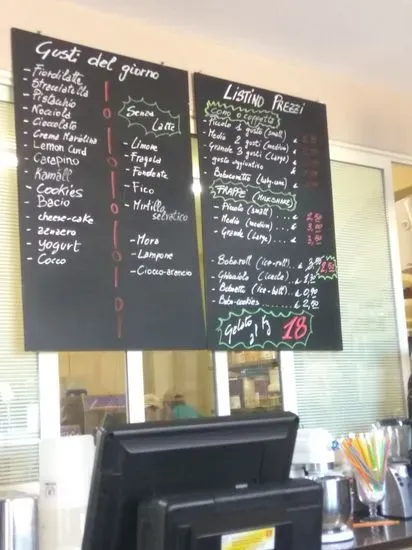 Gusti del giorno
- Fiordilatte
- Stracciatella
- Pistacchio
- Nocciola
- Cioccolato
- Crema
- Lemon Curd
- Carapino
- Kamall
- Cookies
- Bacio
- cheese-cake
- zenzero
- yogurt
- Cocco
Senza
Latte
- Limone
- Fragola
- Fondente
- Fico
- Mirtillo
selvatico
- Mora
- Lampone
- Ciocco-arancio
LISTINO PREZZI
Cono o coppetta
- Piccolo 1 gusto (small)
- Medio 2 gusti (medium)
- Grande 3 gusti (large)
gusto aggiuntivo
- Baboconetto (baby-cone)
FRAPPÈ (MILKSHAKE)
- Piccolo (small) .... € 2,50
- Medio (medium) ... € 3,00
- Grande (large) ... €
- Baboroll (ice-roll) . € 2,50
- Ghiacciolo (icicle) €
- Babonetti (ice-ball) €
- Babo-cookies €
Gelato
al kg 18